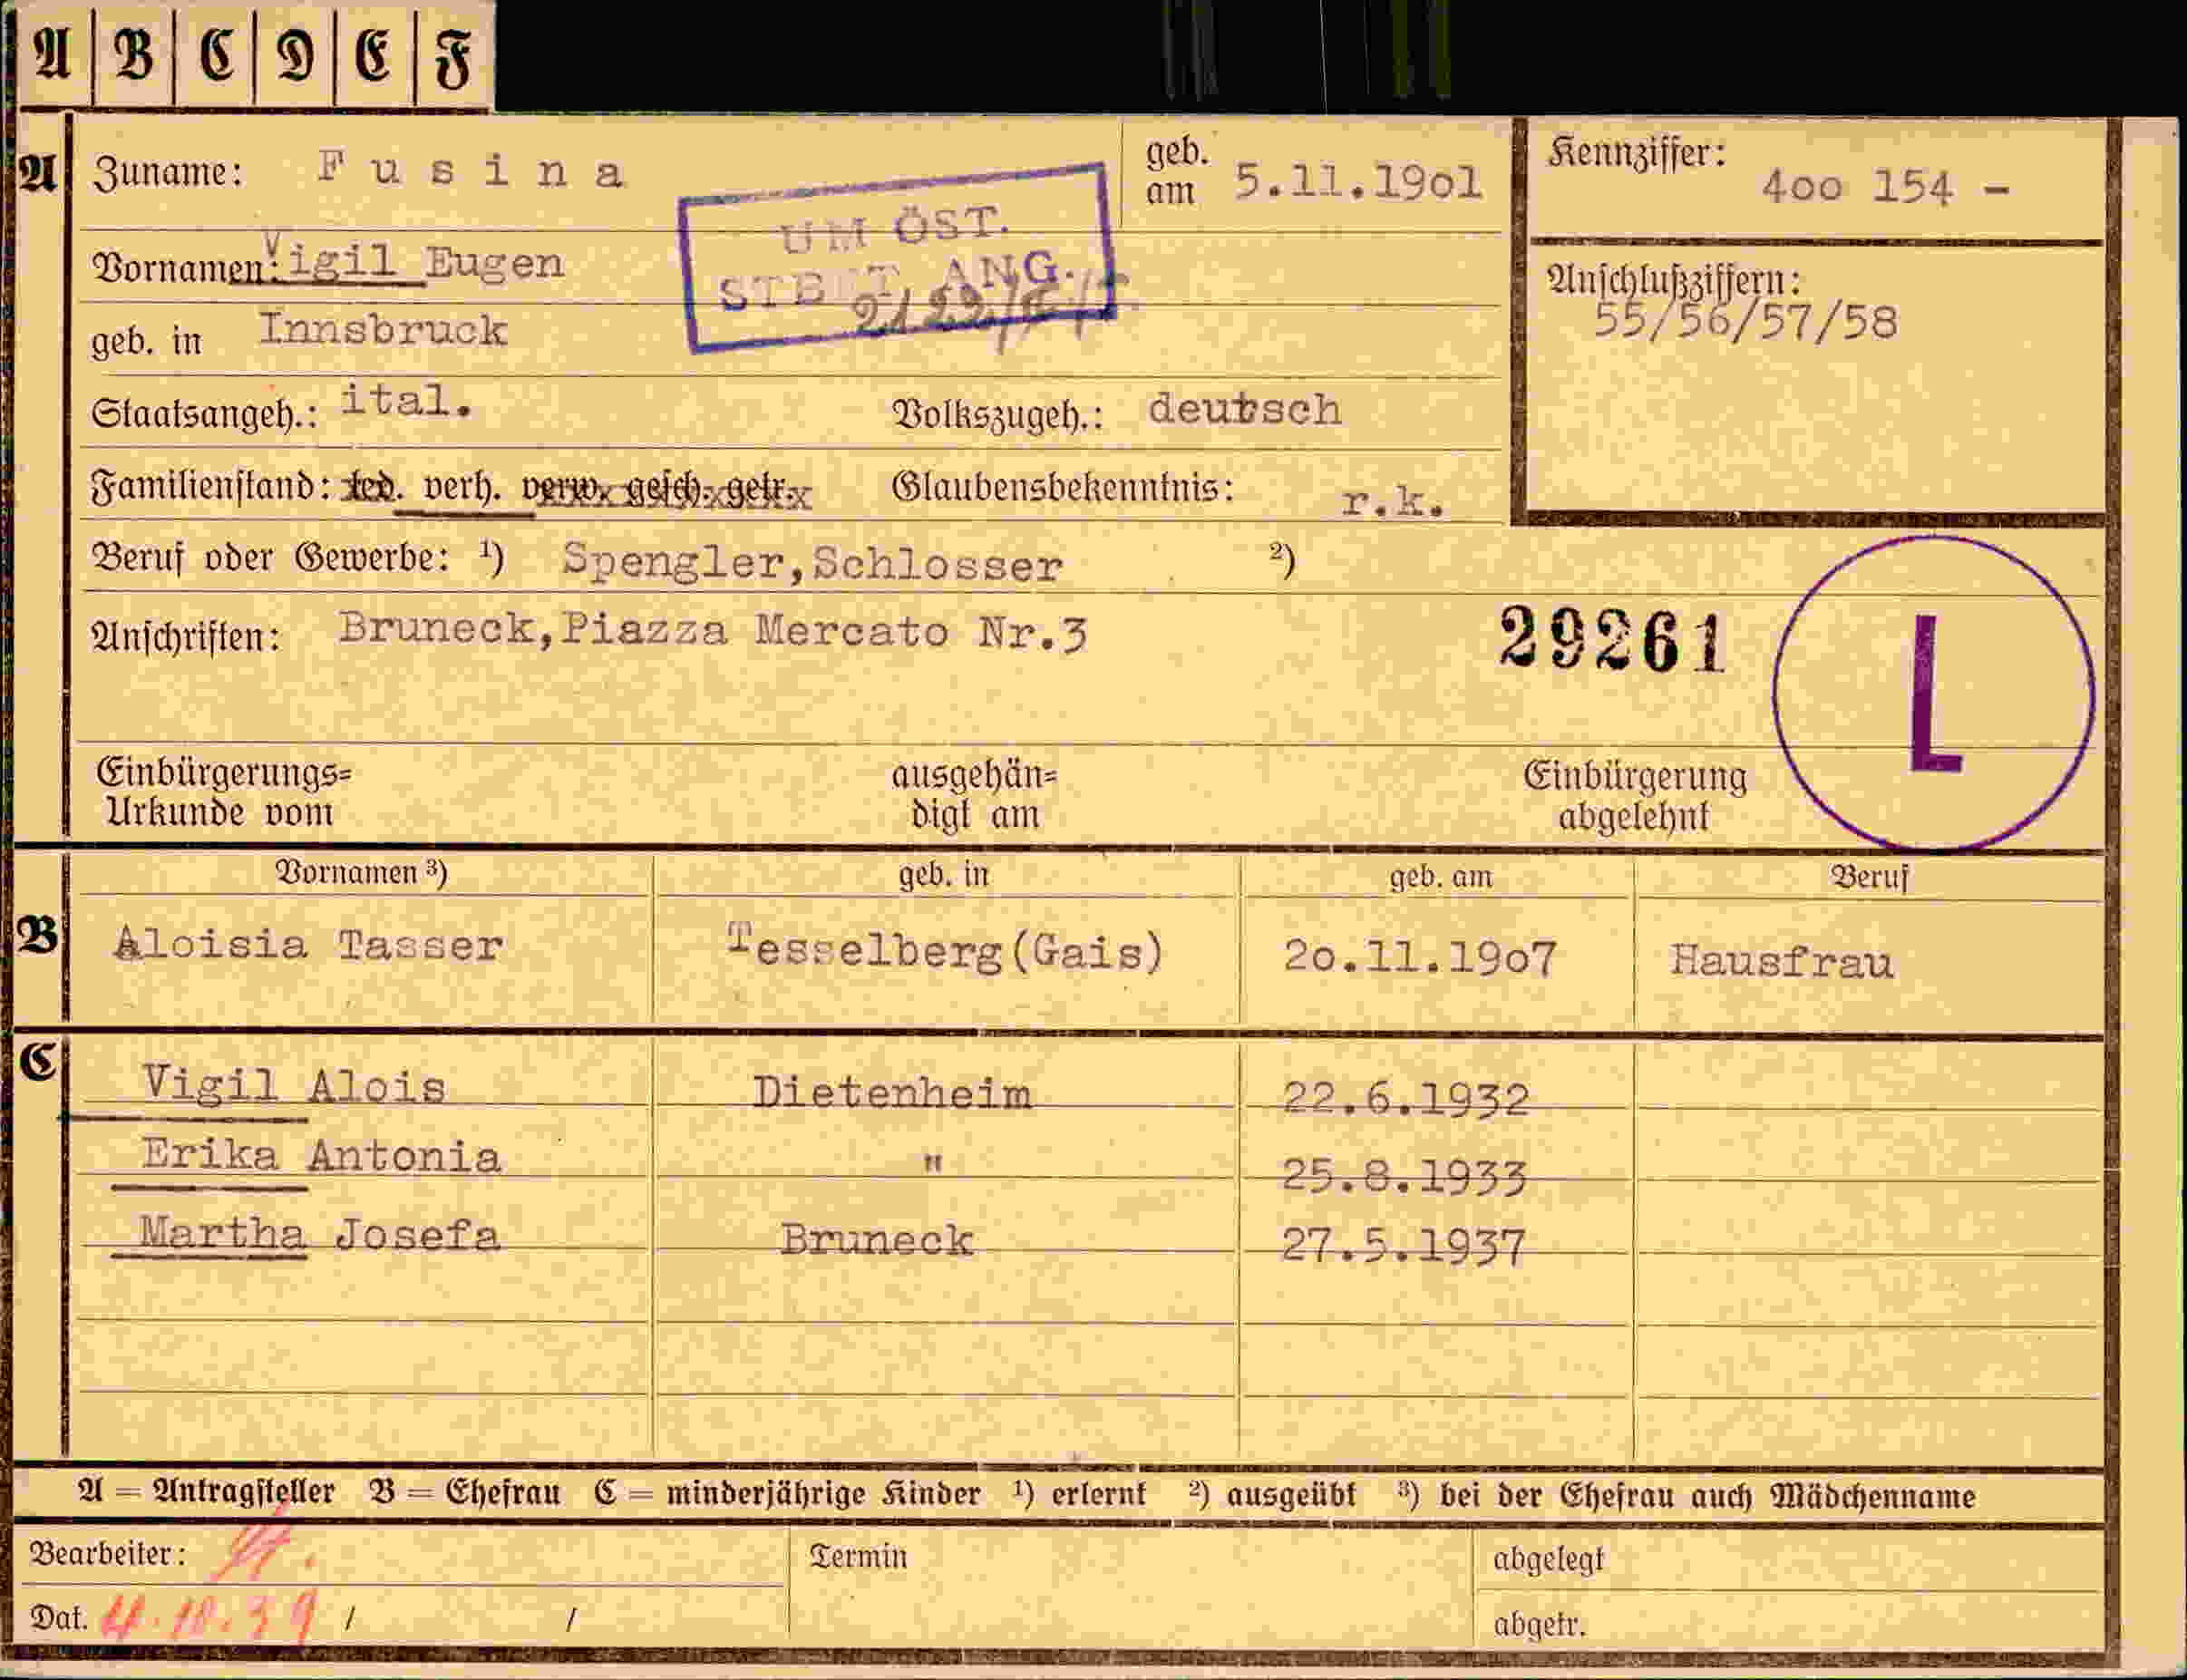 A B C D E F
A Zuname: Fusina geb. am 5.11.19o1 Kennziffer: 4oo 154 -
UM ÖST.
Vornamen: Vigil Eugen
STBT ANG. Anschlußziffern:
geb. in Innsbruck 55/56/57/58
Staatsangeh.: ital. Volkszugeh.: deutsch
Familienstand: led. verh. verw. gesch. getr. Glaubensbekenntnis: r.k.
Beruf oder Gewerbe: ¹) Spengler,Schlosser ²)
Anschriften: Bruneck,Piazza Mercato Nr.3 29261 L
Einbürgerungs= ausgehän= Einbürgerung
Urkunde vom digt am abgelehnt
Vornamen ³) geb. in geb. am Beruf
B Aloisia Tasser Tesselberg(Gais) 2o.11.19o7 Hausfrau
C Vigil Alois Dietenheim 22.6.1932
Erika Antonia " 25.8.1933
Martha Josefa Bruneck 27.5.1937
A = Antragsteller B = Ehefrau C = minderjährige Kinder ¹) erlernt ²) ausgeübt ³) bei der Ehefrau auch Mädchenname
Bearbeiter: Termin abgelegt
Dat. 4.10.39 / / abgetr.